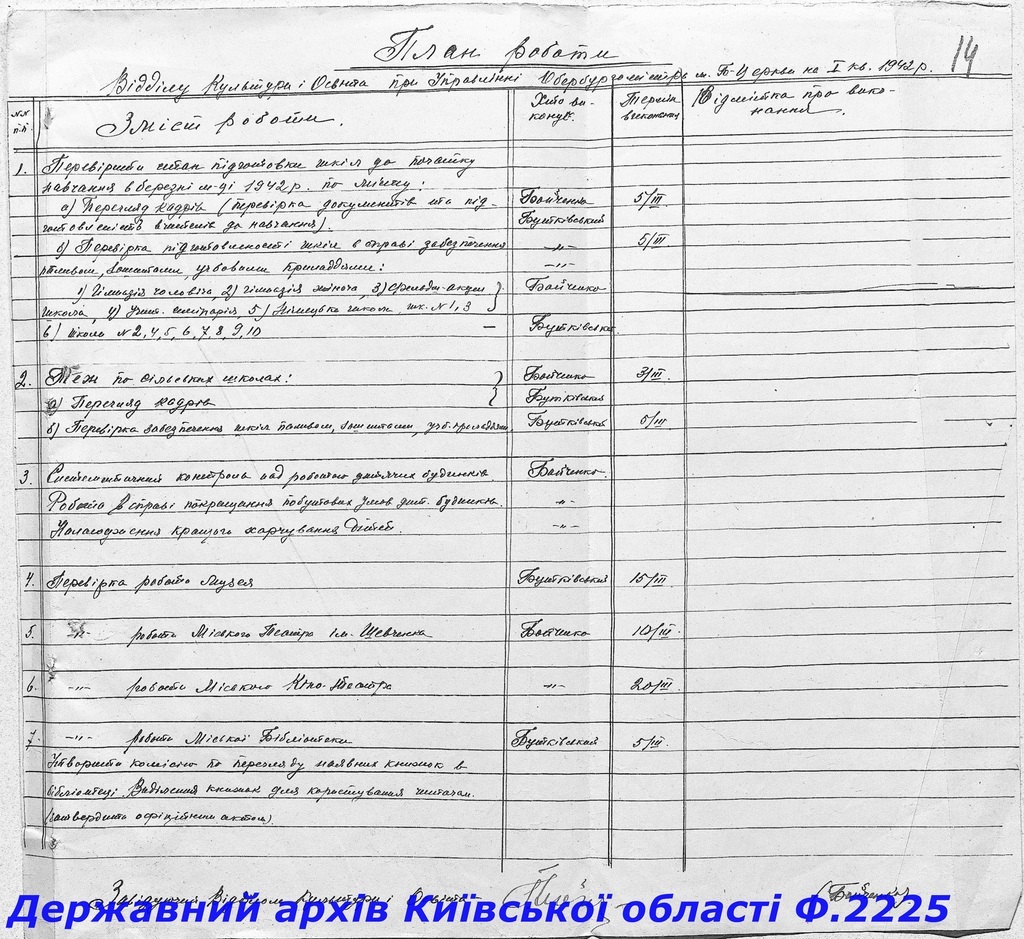 План роботи
14
Відділу Культури і Освіти при Управлінні Обербургомістра м. Б-Церкви на I кв. 1942 р.
NN п.п. Зміст роботи. Хто ви-конує. Термін виконання Відмітка про вико-нання.
1. Перевірити стан підготовки шкіл до початку
навчання в березні м-ці 1942 р. по місту:
а) Перегляд кадрів (перевірка документів та під- Бойченко 5/III
готовленість вчителів до навчання). Бутківський
б) Перевірка підготовленості шкіл в справі забезпечення -"- 5/III
паливом, зошитами, учбовими приладдями: -"-
1) Гімназія чоловіча, 2) гімназія жіноча, 3) Фельдш.-акуш. Бойченко
школа, 4) Учит. семінарія 5) Німецька школа, шк. N 1, 3
в) школи N 2, 4, 5, 6, 7, 8, 9, 10 — Бутківський
2. Теж по сільських школах: Бойченко 3/III
а) Перегляд кадрів Бутківський
б) Перевірка забезпечення шкіл паливом, зошитами, учб. приладдям Бутківський 5/III
3. Систематичний контроль над роботою дитячих будинків Бойченко
Робота в справі покращання побутових умов дит. будинків. -"-
Налагодження кращого харчування дітей. -"-
4. Перевірка роботи Музея Бутківський 15/III
5. -"- роботи Міського Театру ім. Шевченка Бойченко 10/III.
6. -"- роботи Міського Кіно-театру -"- 20/III.
7. -"- роботи Міської Бібліотеки Бутківський 5/III.
Утворити комісію по перегляду наявних книжок в
бібліотеці. Виділення книжок для користування читачам.
(затвердити офіційним актом).
Завідуючий Відділом Культури і Освіти (Бойченко)
Державний архів Київської області Ф.2225